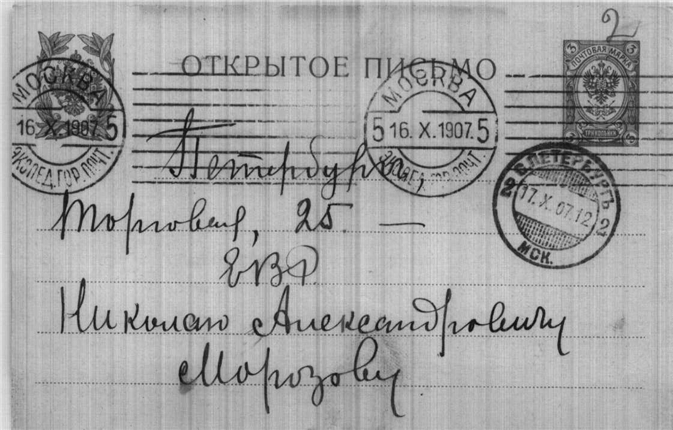 2
ОТКРЫТОЕ ПИСЬМО
3 ПОЧТОВАЯ МАРКА 3
МОСКВА
16. X. 1907. 5
ЭКСПЕД. ГОР. ПОЧТ.
МОСКВА
5 16. X. 1907. 5
ЭКСПЕД. ГОР. ПОЧТ.
Петербургъ,
С. ПЕТЕРБУРГЪ
2 17. X. 07. 12 2
МСК.
Торговая, 25. —
ЕВР.
Николаю Александровичу
Морозову